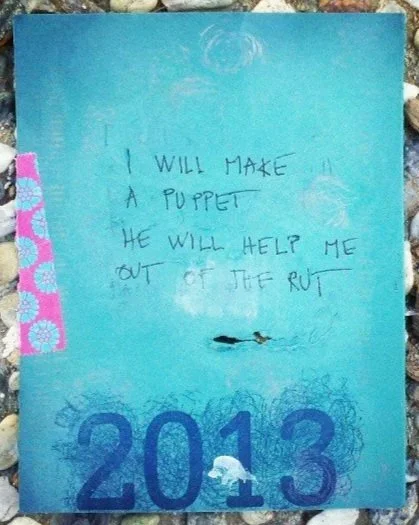 I WILL MAKE
A PUPPET
HE WILL HELP ME
OUT OF THE RUT
2013